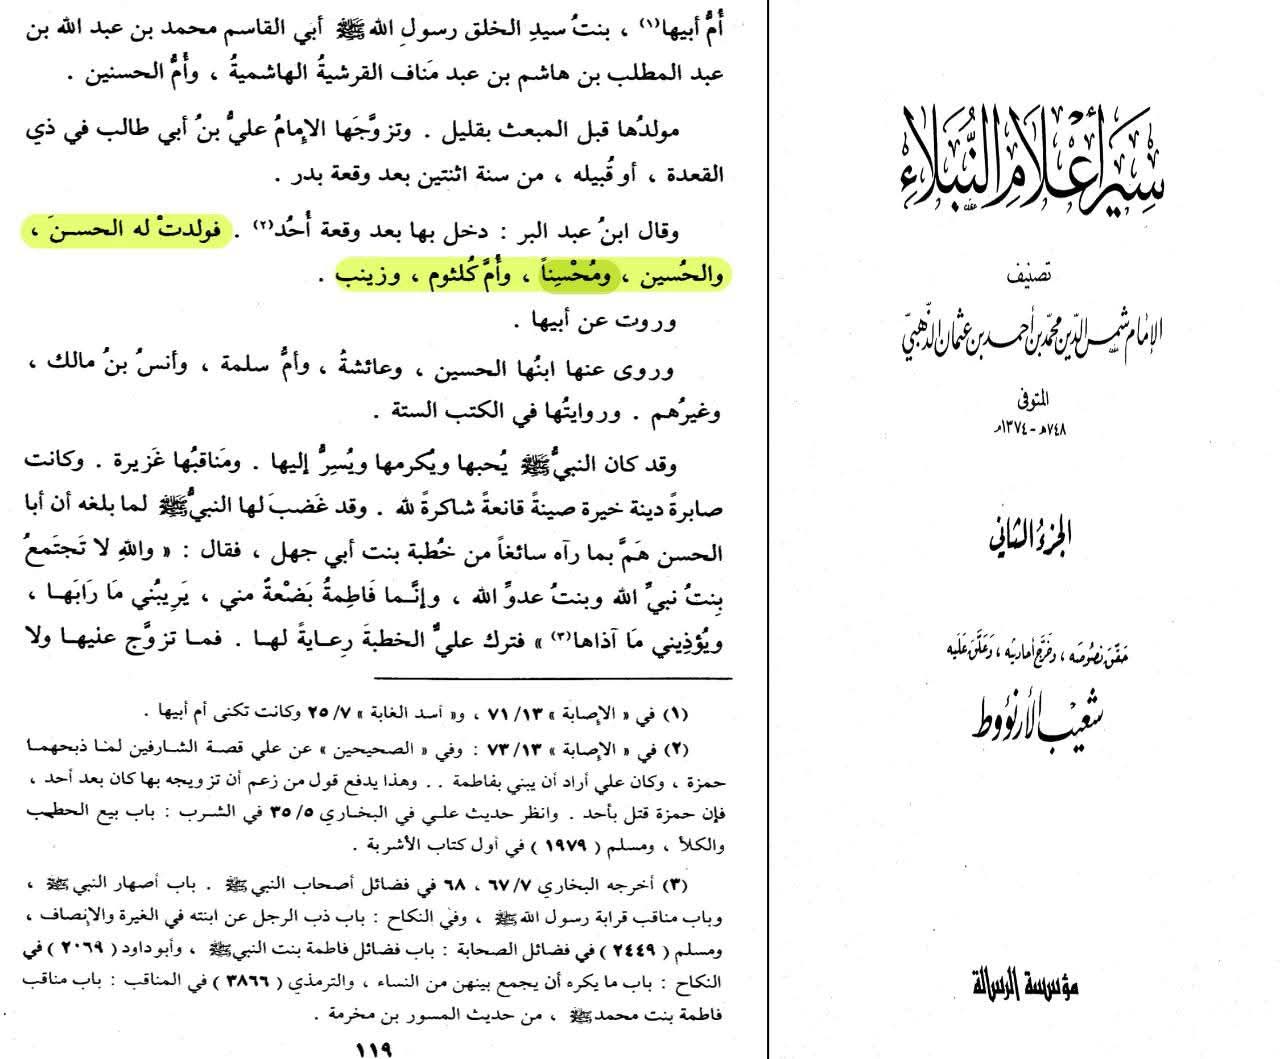 سير أعلام النبلاء
تصنيف
الإمام شمس الدين محمد بن أحمد بن عثمان الذهبي
المتوفى
٧٤٨هـ - ١٣٧٤م
الجزء الثاني
حقق نصوصه ، وخرج أحاديثه ، وعلق عليه
شعيب الأرنؤوط
مؤسسة الرسالة
أُمُّ أبيها(١) ، بنتُ سيدِ الخلق رسولِ الله ﷺ أبي القاسم محمد بن عبد الله بن
عبد المطلب بن هاشم بن عبد مَناف القرشيةُ الهاشميةُ ، وأُمُّ الحسنين .
مولدُها قبل المبعث بقليل . وتزوَّجَها الإمامُ عليُّ بنُ أبي طالب في ذي
القعدة ، أو قُبيله ، من سنة اثنتين بعد وقعة بدر .
وقال ابنُ عبد البر : دخل بها بعد وقعة أُحُد(٢) . فولدتْ له الحسنَ ،
والحُسين ، ومُحْسِناً ، وأُمَّ كُلثوم ، وزينب .
وروت عن أبيها .
وروى عنها ابنُها الحسين ، وعائشةُ ، وأمُّ سلمة ، وأنسُ بنُ مالك ،
وغيرُهم . وروايتُها في الكتب الستة .
وقد كان النبيُّ ﷺ يُحبها ويُكرمها ويُسِرُّ إليها . ومَناقبُها غَزيرة . وكانت
صابرةً دينة خيرة صينةً قانعةً شاكرةً لله . وقد غَضبَ لها النبيُّ ﷺ لما بلغه أن أبا
الحسن هَمَّ بما رآه سائغاً من خُطبة بنت أبي جهل ، فقال : « واللهِ لا تَجتَمعُ
بِنتُ نبيِّ الله وبنتُ عدوِّ الله ، وإنَّما فَاطِمةُ بَضْعةٌ مني ، يَرِيبُني مَا رَابَها ،
ويُؤذِيني مَا آذاها(٣) » فترك عليٌّ الخطبةَ رِعايةً لها . فما تزوَّج عليها ولا
(١) في « الإصابة » ١٣/ ٧١ ، و« أسد الغابة » ٧/ ٢٥ وكانت تكنى أم أبيها .
(٢) في « الإصابة » ١٣/ ٧٣ : وفي « الصحيحين » عن علي قصة الشارفين لما ذبحهما
حمزة ، وكان علي أراد أن يبني بفاطمة . . وهذا يدفع قول من زعم أن تزويجه بها كان بعد أحد ،
فإن حمزة قتل بأحد . وانظر حديث علي في البخاري ٥/ ٣٥ في الشرب : باب بيع الحطب
والكلأ ، ومسلم ( ١٩٧٩ ) في أول كتاب الأشربة .
(٣) أخرجه البخاري ٧/ ٦٧ ، ٦٨ في فضائل أصحاب النبي ﷺ . باب أصهار النبي ﷺ ،
وباب مناقب قرابة رسول الله ﷺ ، وفي النكاح : باب ذب الرجل عن ابنته في الغيرة والإنصاف ،
ومسلم ( ٢٤٤٩ ) في فضائل الصحابة : باب فضائل فاطمة بنت النبي ﷺ ، وأبو داود ( ٢٠٦٩ ) في
النكاح : باب ما يكره أن يجمع بينهن من النساء ، والترمذي ( ٣٨٦٦ ) في المناقب : باب مناقب
فاطمة بنت محمد ﷺ ، من حديث المسور بن مخرمة .
١١٩